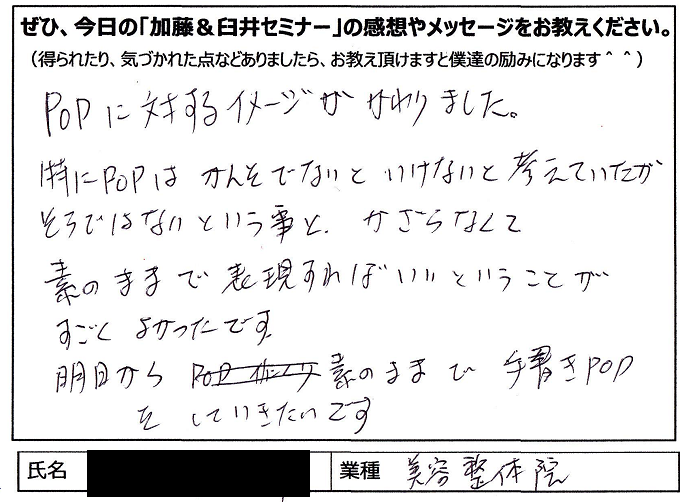 ぜひ、今日の「加藤＆臼井セミナー」の感想やメッセージをお教えください。
（得られたり、気づかれた点などありましたら、お教え頂けますと僕達の励みになります＾＾）
POPに対するイメージがかわりました。
特にPOPは かんそでないと いけないと 考えていたが
そうではないという事と、かざらなくて
素のままで表現すればいいということが
すごく よかったです。
明日から POP 作り 素のままで 手書きPOP
を していきたいです
氏名
業種 美容整体院